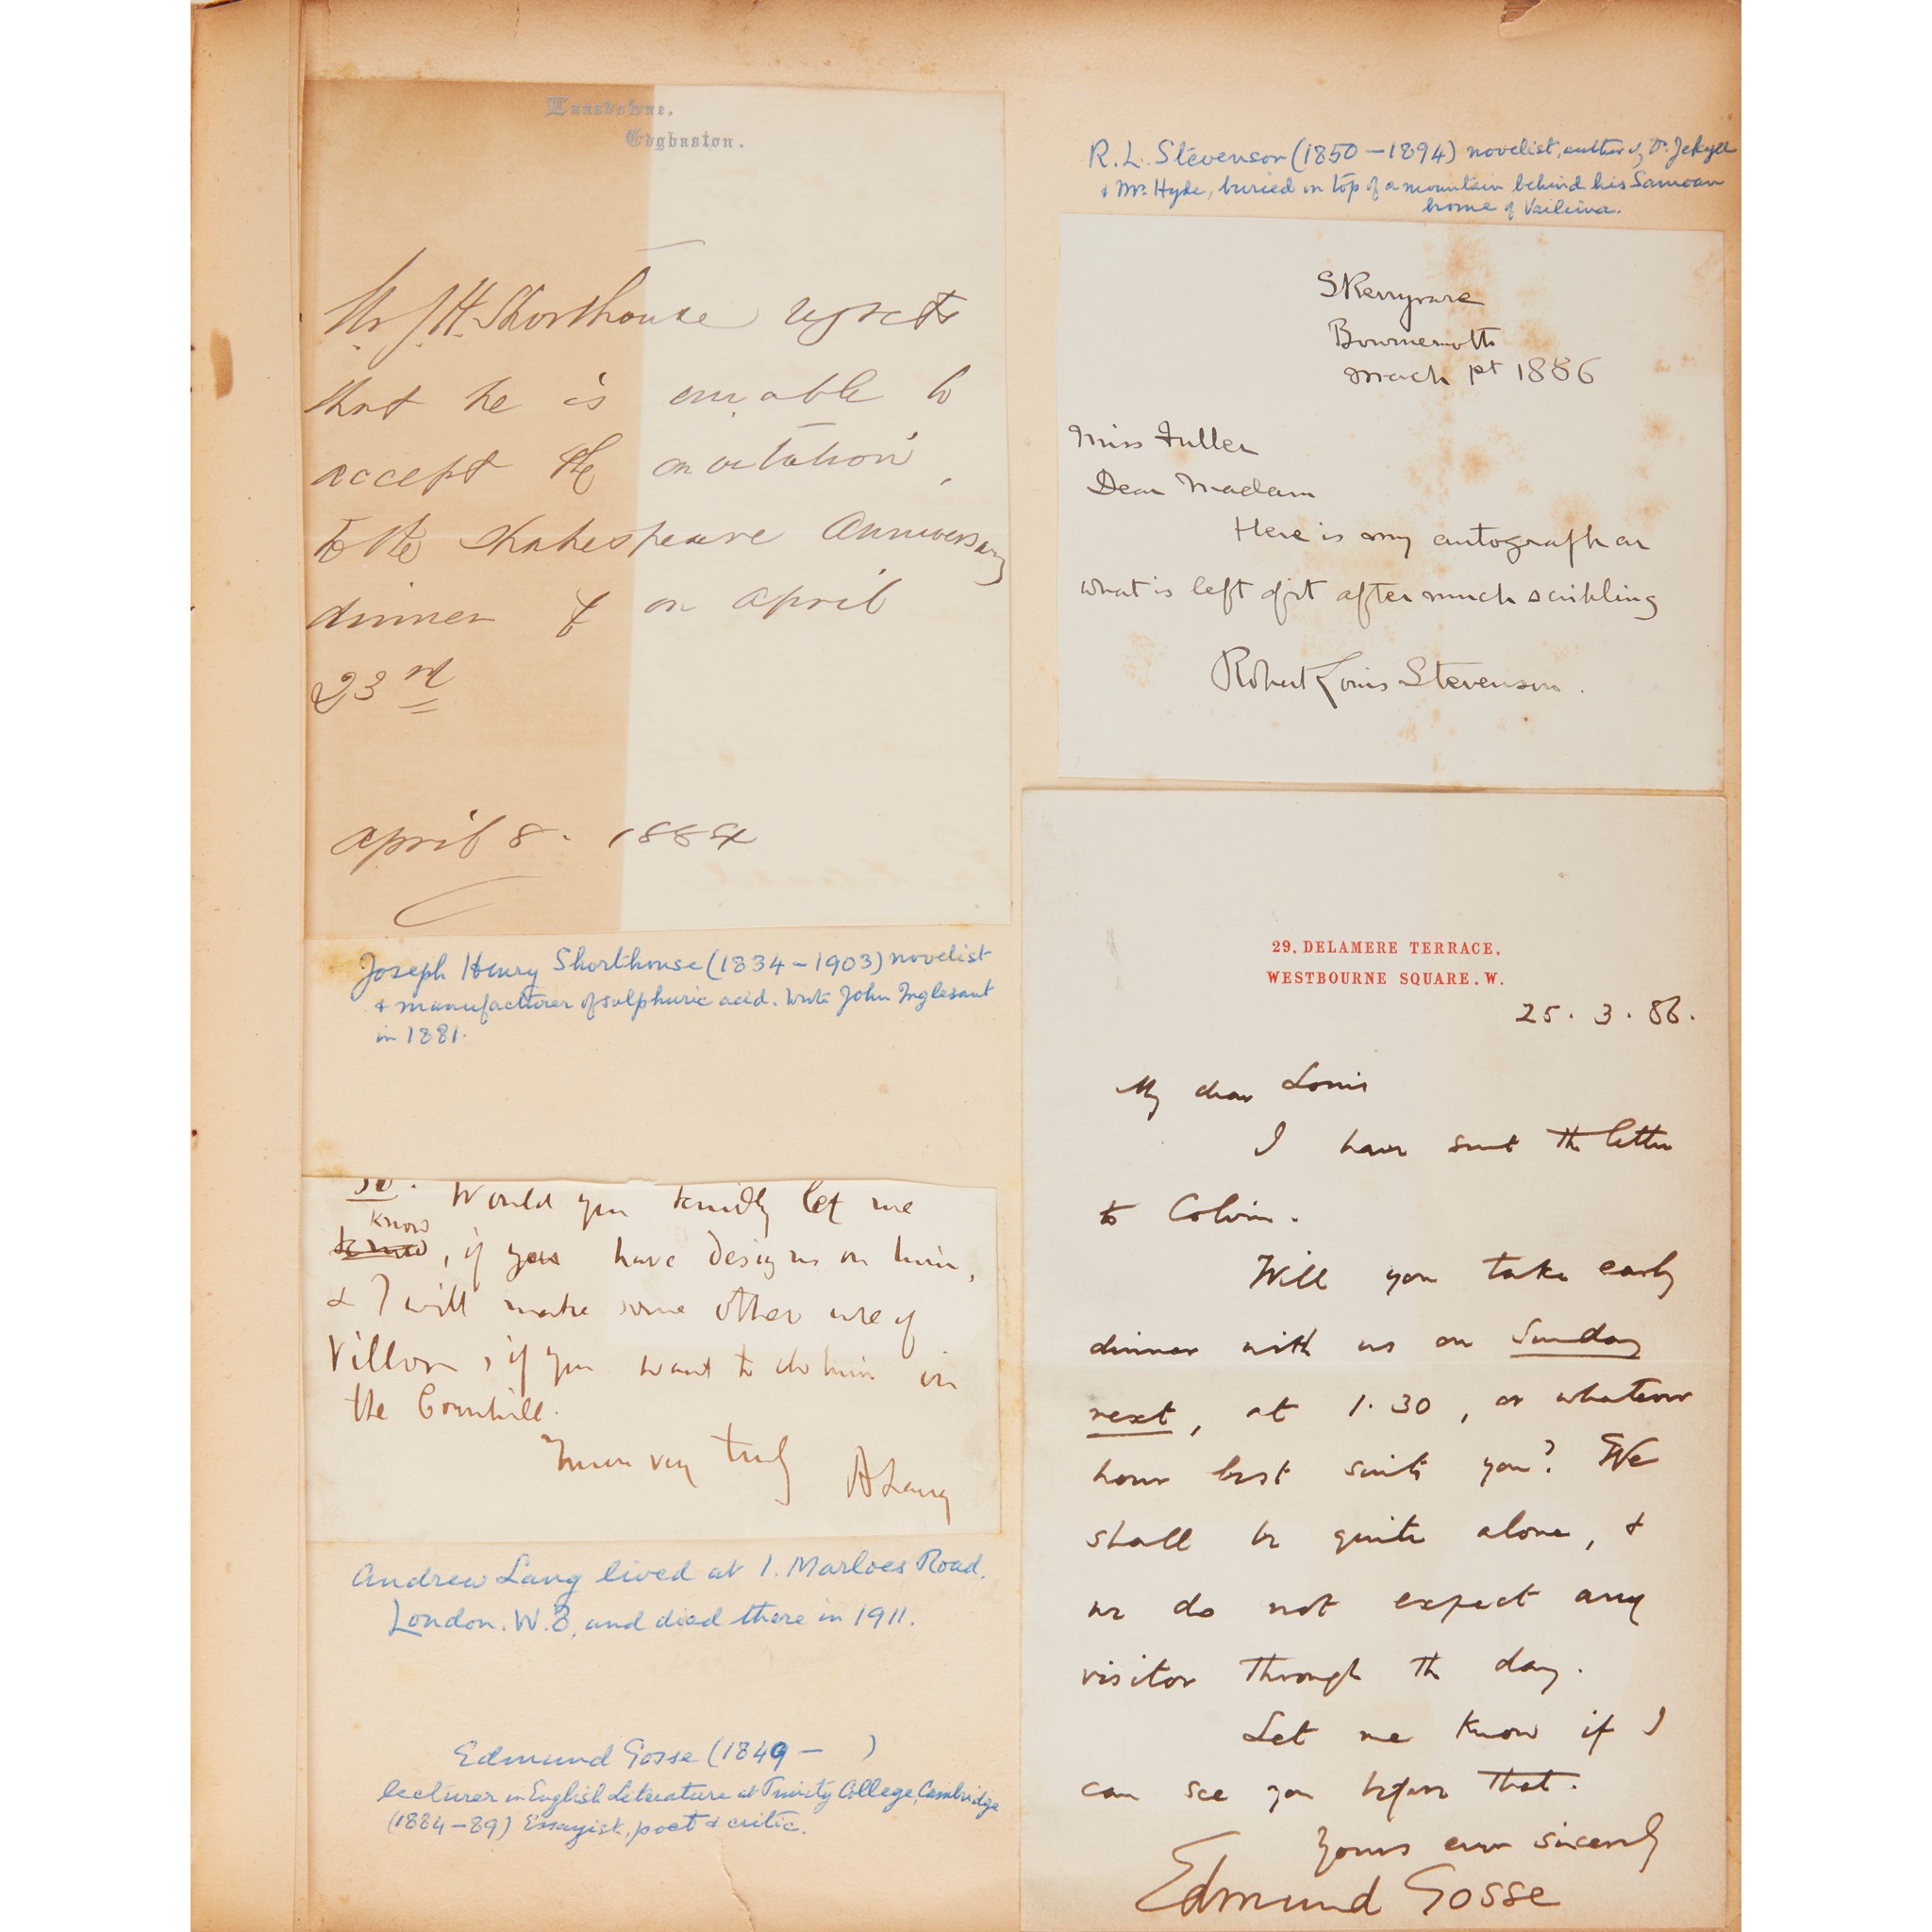 Lansdowne,
Edgbaston.
Mr J. H. Shorthouse regrets
that he is unable to
accept the invitation
to the Shakespeare Anniversary
dinner on April
23rd
April 8. 1884
Joseph Henry Shorthouse (1834 – 1903) novelist
& manufacturer of sulphuric acid. Wrote John Inglesant
in 1881.
so. Would you kindly let me
know, if you have designs on him,
& I will make some other use of
Villon, if you want to do him in
the Cornhill.
Yours very truly
A Lang
Andrew Lang lived at 1. Marloes Road.
London. W.8, and died there in 1911.
Edmund Gosse (1849 – )
lecturer in English Literature at Trinity College, Cambridge
(1884 – 89) Essayist, poet & critic.
R. L. Stevenson (1850 – 1894) novelist, author of Dr Jekyll
& Mr Hyde, buried on top of a mountain behind his Samoan
home of Vailima.
Skerryvore
Bournemouth
1886
Miss Fuller
Dear Madam
Here is my autograph or
what is left of it after much scribbling
Robert Louis Stevenson.
29, DELAMERE TERRACE,
WESTBOURNE SQUARE. W.
25. 3. 86.
My dear Louis
I have sent the letter
to Colvin.
Will you take early
dinner with us on Sunday
next, at 1.30, or whatever
hour best suits you? We
shall be quite alone, &
we do not expect any
visitor through the day.
Let me know if I
can see you before that.
Yours ever sincerely
Edmund Gosse